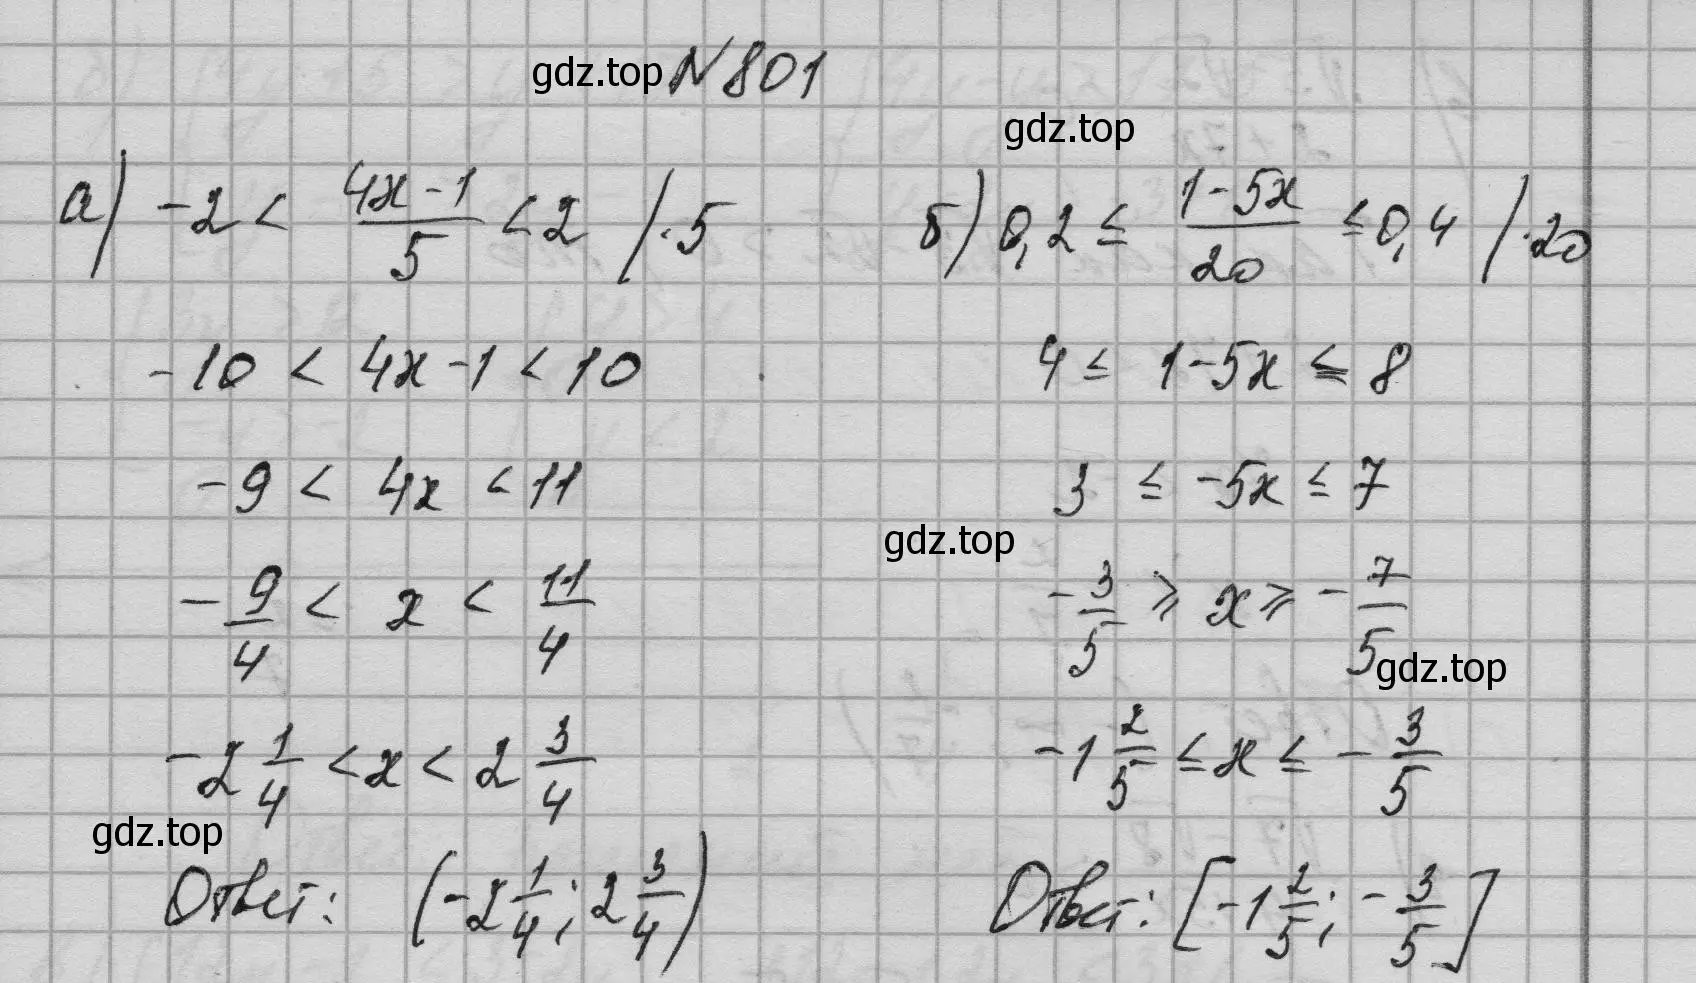 gdz.top N 801
gdz.top
а) -2 < (4x-1)/5 < 2 / ·5
-10 < 4x-1 < 10
-9 < 4x < 11
-9/4 < x < 11/4
-2 1/4 < x < 2 3/4
gdz.top
Ответ: (-2 1/4; 2 3/4)
б) 0,2 ≤ (1-5x)/20 ≤ 0,4 / ·20
4 ≤ 1-5x ≤ 8
3 ≤ -5x ≤ 7
gdz.top
-3/5 ⩾ x ⩾ -7/5
gdz.top
-1 2/5 ≤ x ≤ -3/5
Ответ: [-1 2/5; -3/5]